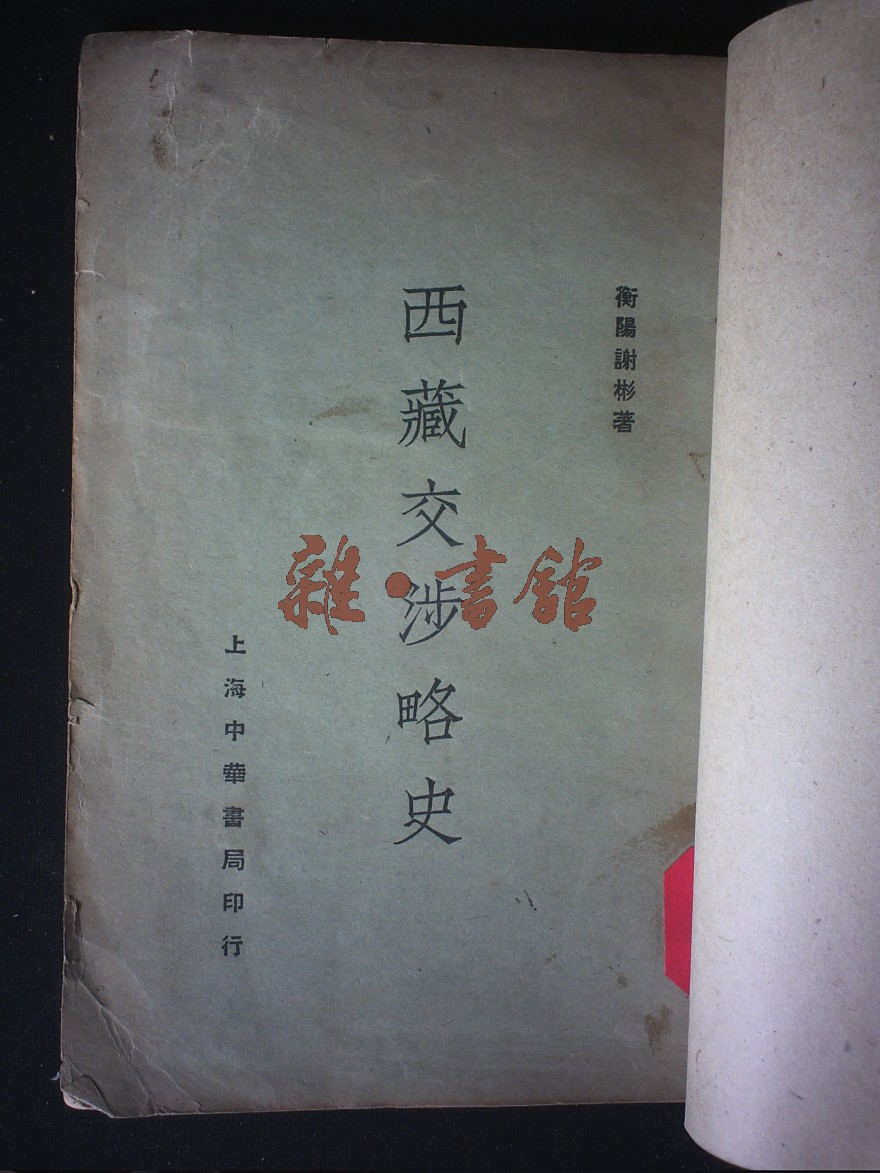 衡陽謝彬著
西藏交涉略史
上海中華書局印行
雜·書舘